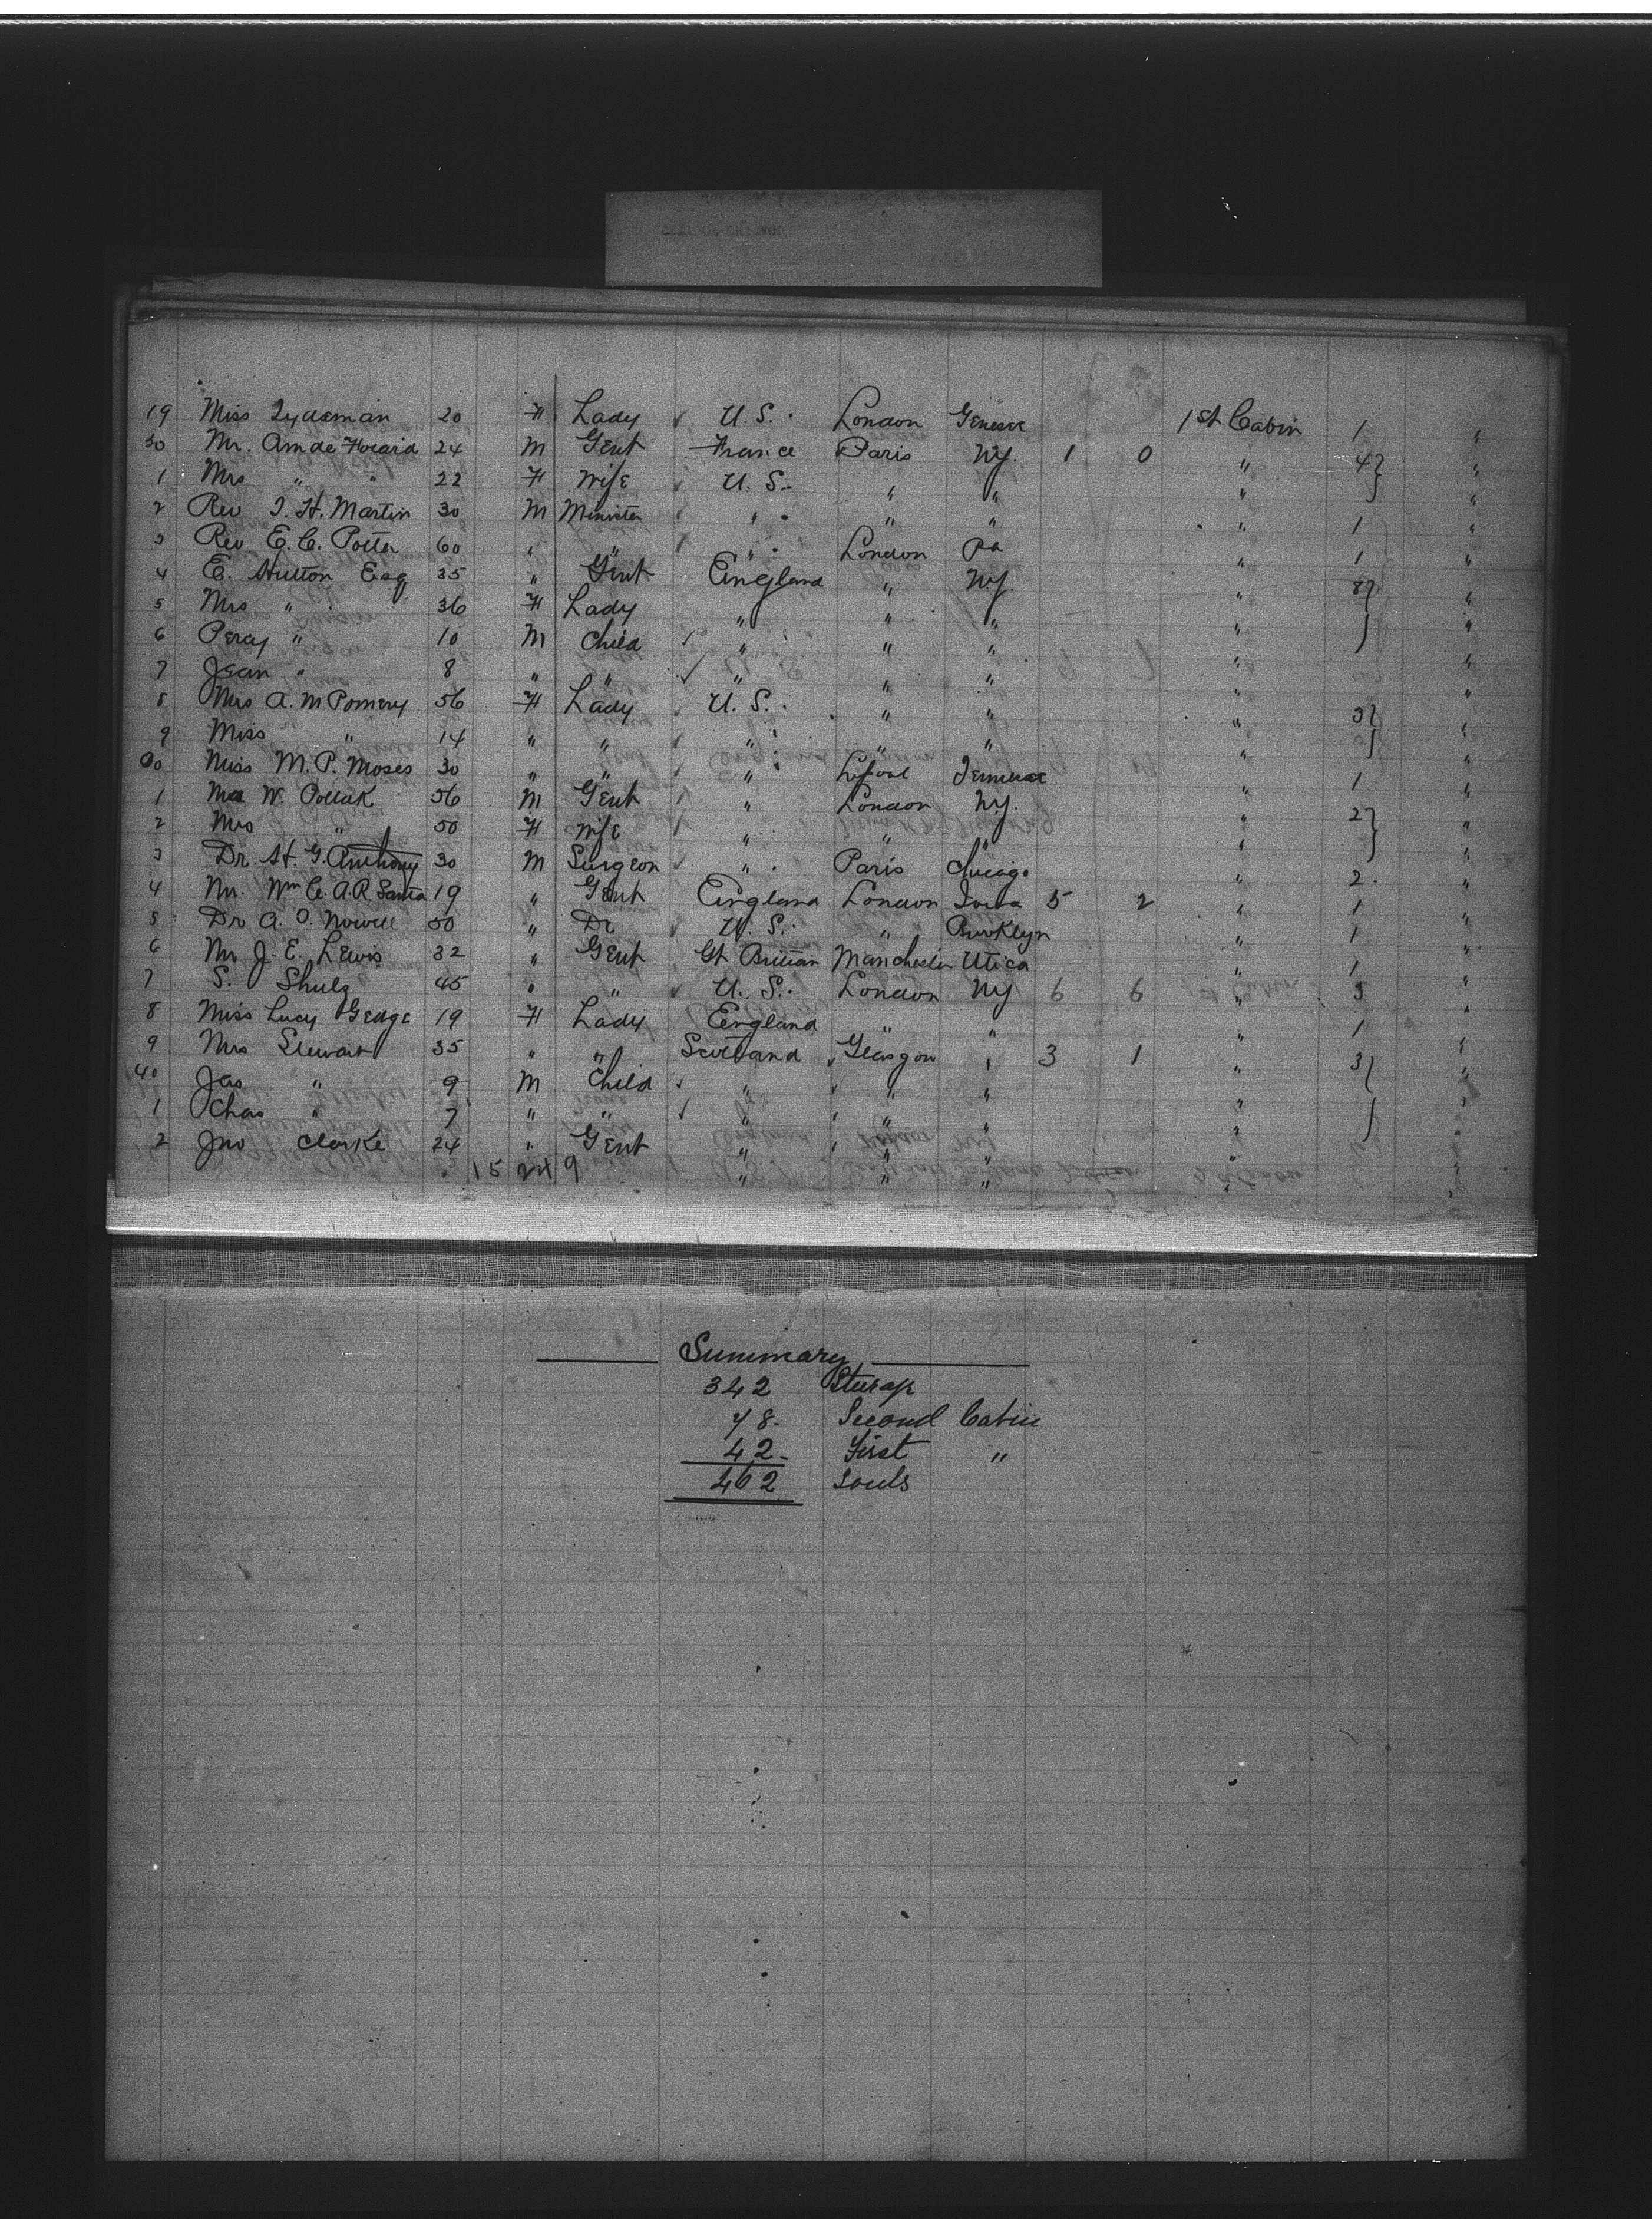 19 Miss Lydeman 20 F Lady U.S. London 1st Cabin 1 "
20 Mr. Amde 24 M Gent France Paris NY. 1 0 " 4 "
1 Mrs " " 22 F Wife U.S. " " " "
2 Rev T. H. Martin 30 M Minister " " " " 1 "
3 Rev E. C. Potter 60 " " " London Pa " 1 "
4 E. Hutton Esq 35 " Gent England " NY. " 8 "
5 Mrs " 36 F Lady " " " " "
6 Percy " 10 M Child " " " " "
7 Jean " 8 " " " " " " "
8 Mrs A. M Pomery 56 F Lady U.S. " " " 3 "
9 Miss " 14 " " " " " " "
30 Miss M. P. Moses 30 " " " L'pool " 1 "
1 W. Pollak 56 M Gent " London NY. " 2 "
2 Mrs " 50 F Wife " " " " "
3 Dr. H. G. Anthony 30 M Surgeon " Paris Chicago " 2 "
4 Mr. Wm C. A. R. 19 " Gent England London 5 2 " 1 "
5 Dr A. O. Nowell 50 " Dr U.S. " Brooklyn " 1 "
6 Mr J. E. Lewis 32 " Gent Gt Britian Manchester Utica " 1 "
7 S. Shulz 45 " " U.S. London NY 6 6 " 3 "
8 Miss Lucy 19 F Lady England " " " 1 "
9 Mrs Stewart 35 " " Scotland Glasgow " 3 1 " 3 "
40 Jas " 9 M Child " " " " "
1 Chas " 7 " " " " " " "
2 Jno Clarke 24 " Gent " " " " "
15 24 9 " " " "
Summary
342 Steerage
78 Second Cabin
42 First "
462 Souls